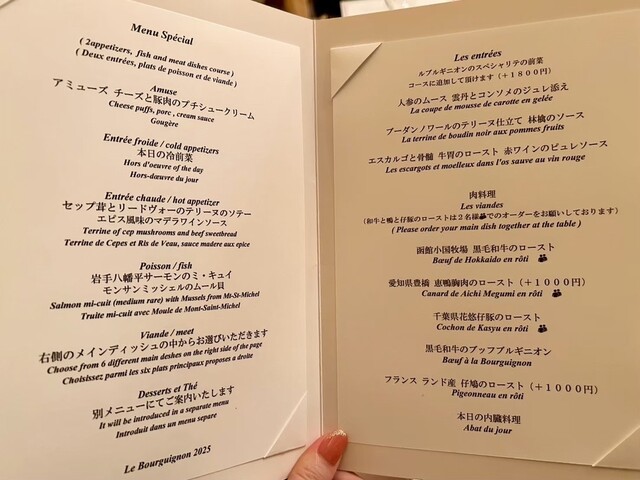 Menu Spécial
( 2appetizers, fish and meat dishes course )
( Deux entrées, plats de poisson et de viande )
Amuse
アミューズ チーズと豚肉のプチシュークリーム
Cheese puffs, porc , cream sauce
Gougère
Entrée froide / cold appetizers
本日の冷前菜
Hors d'oeuvre of the day
Hors-dœuvre du jour
Entrée chaude / hot appetizer
セップ茸とリードヴォーのテリーヌのソテー
エピス風味のマデラワインソース
Terrine of cep mushrooms and beef sweetbread
Terrine de Cepes et Ris de Veau, sauce madere aux epice
Poisson / fish
岩手八幡平サーモンのミ・キュイ
モンサンミッシェルのムール貝
Salmon mi-cuit (medium rare) with Mussels from Mt-St-Michel
Truite mi-cuit avec Moule de Mont-Saint-Michel
Viande / meet
右側のメインディッシュの中からお選びいただきます
Choose from 6 different main deshes on the right side of the page
Choisissez parmi les six plats principaux proposes a droite
Desserts et Thé
別メニューにてご案内いたします
It will be introduced in a separate menu
Introduit dans un menu separe
Le Bourguignon 2025
Les entrées
ルブルギニオンのスペシャリテの前菜
コースに追加して頂けます（＋１８００円）
人参のムース 雲丹とコンソメのジュレ添え
La coupe de mousse de carotte en gelée
ブーダンノワールのテリーヌ仕立て 林檎のソース
La terrine de boudin noir aux pommes fruits
エスカルゴと骨髄 牛胃のロースト 赤ワインのピュレソース
Les escargots et moelleux dans l'os sauve au vin rouge
肉料理
Les viandes
（和牛と鴨と仔豚のローストは２名様でのオーダーをお願いしております）
( Please order your main dish together at the table )
函館小国牧場 黒毛和牛のロースト
Bœuf de Hokkaido en rôti
愛知県豊橋 恵鴨胸肉のロースト（＋１０００円）
Canard de Aichi Megumi en rôti
千葉県花悠仔豚のロースト
Cochon de Kasyu en rôti
黒毛和牛のブッフブルギニオン
Bœuf à la Bourguignon
フランス ランド産 仔鳩のロースト（＋１０００円）
Pigeonneau en rôti
本日の内臓料理
Abat du jour